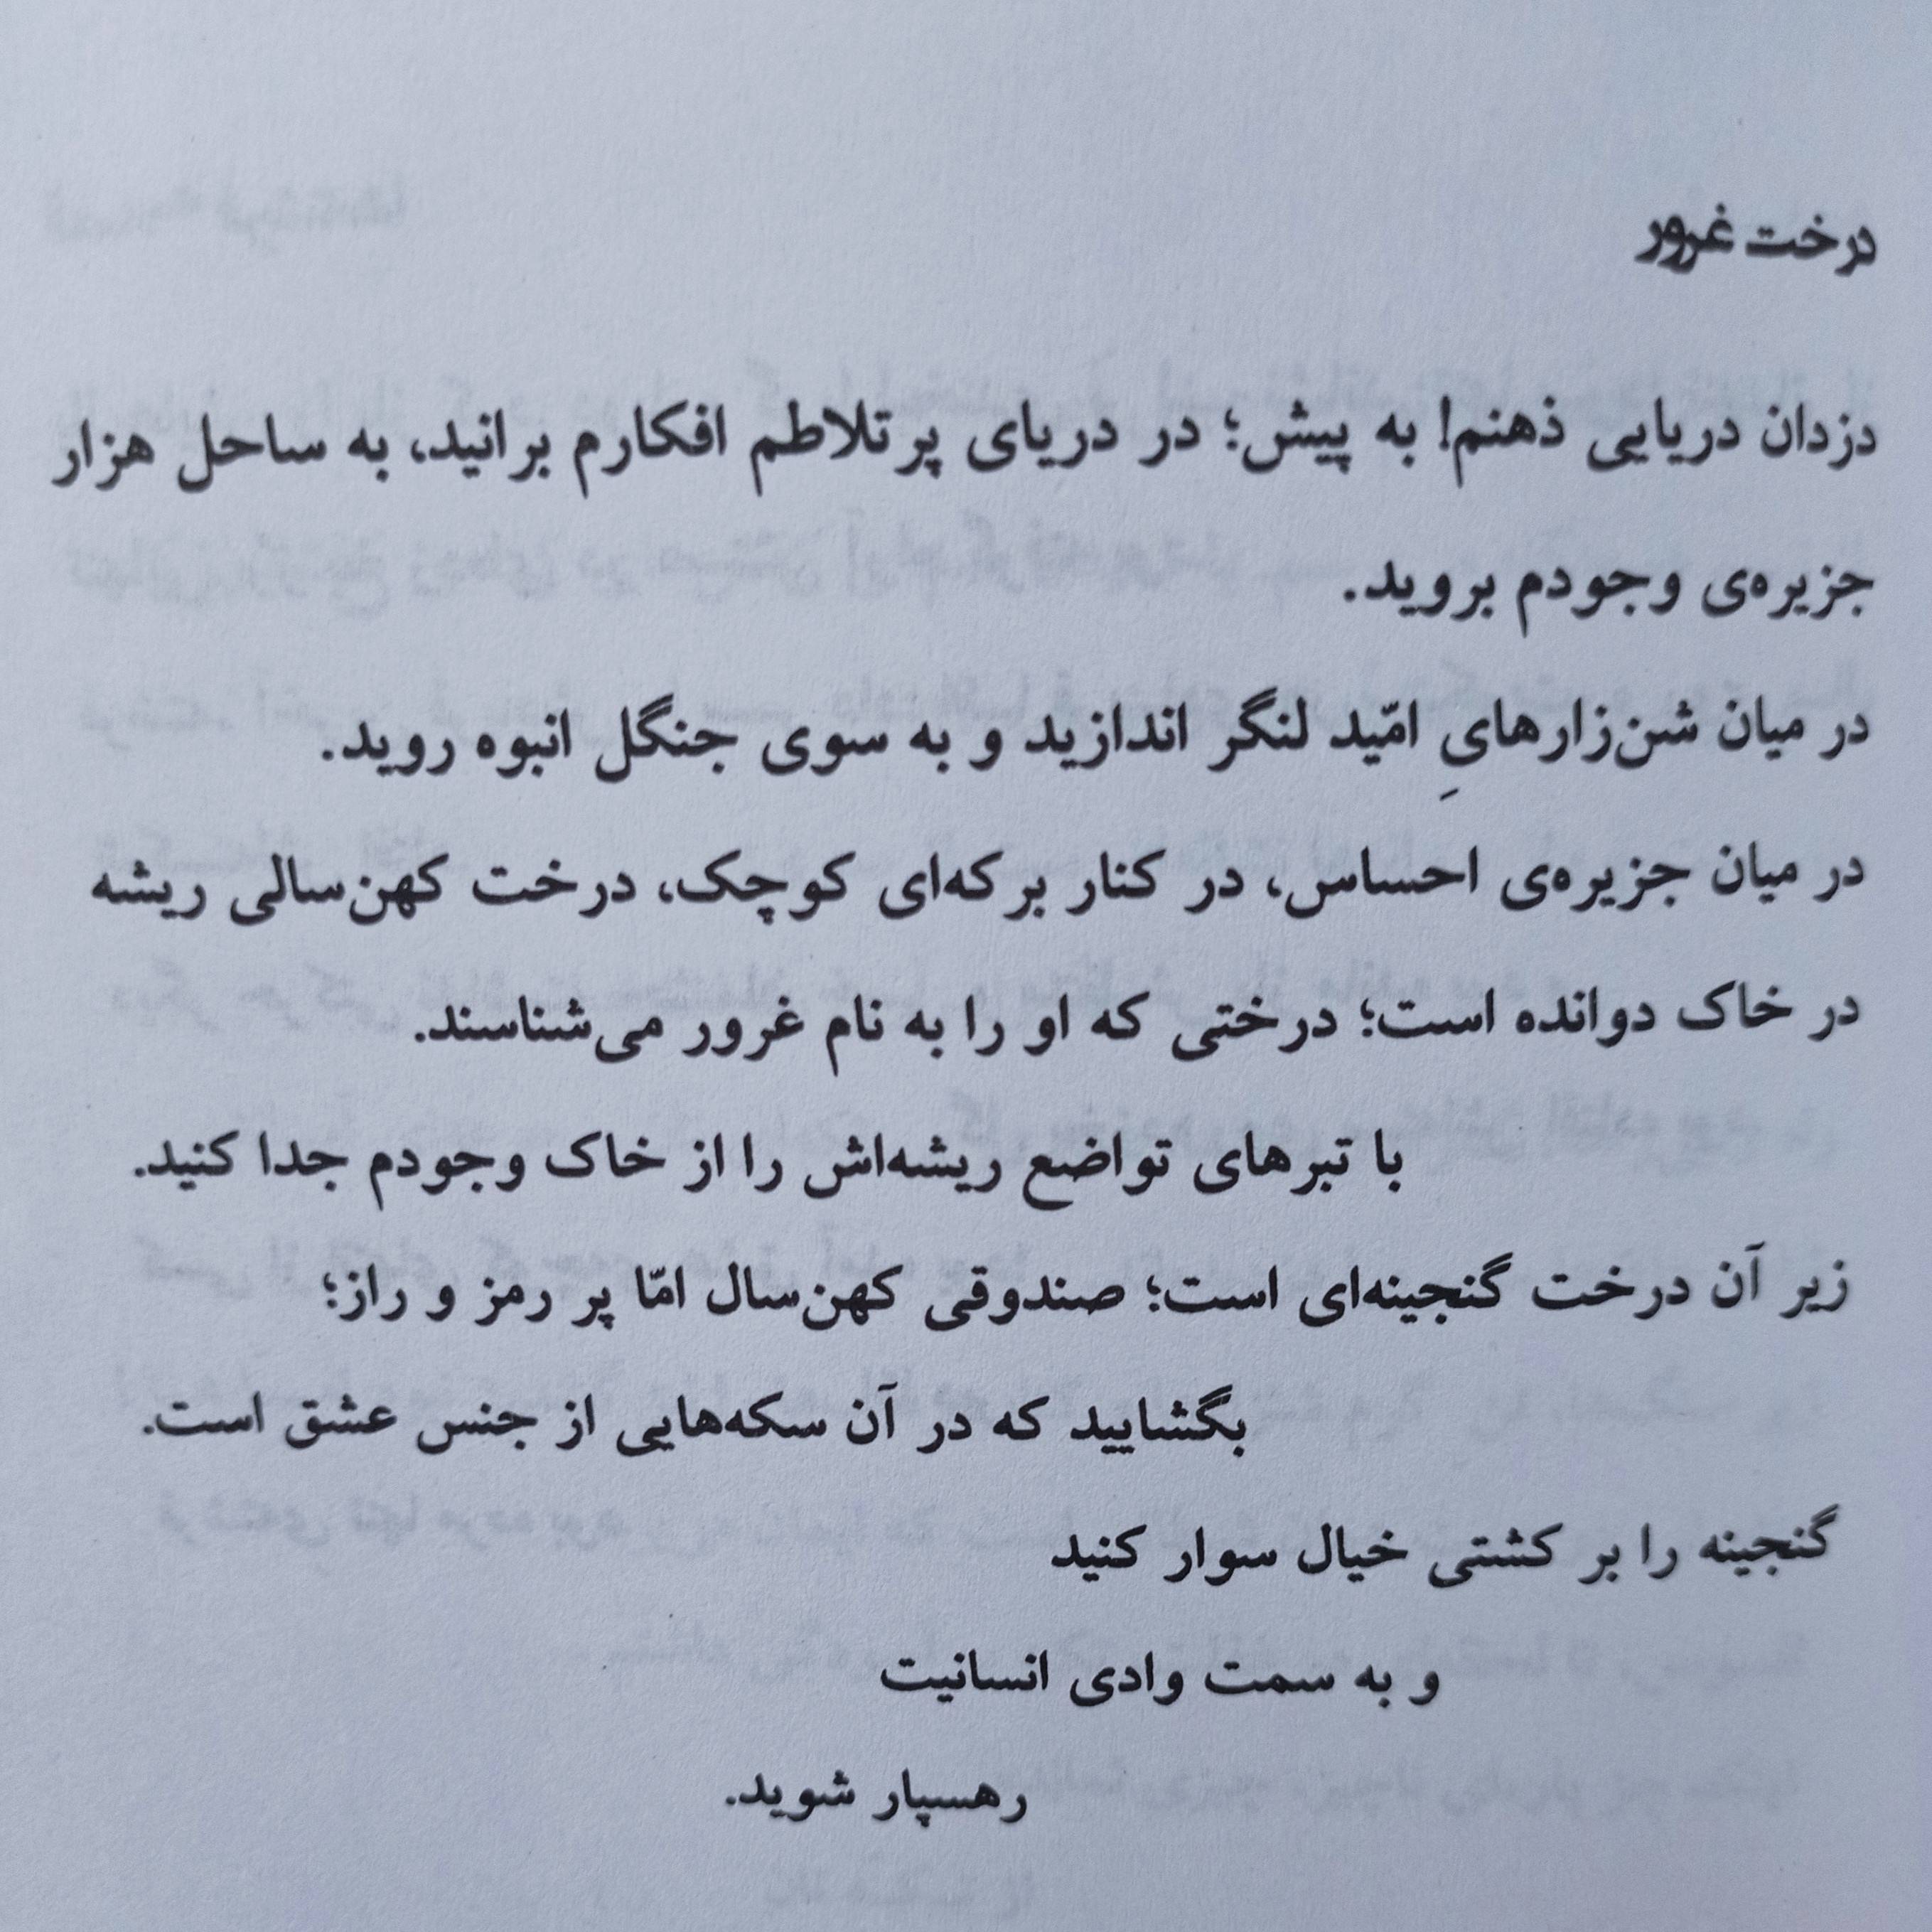 درخت غرور
دزدان دریایی ذهنم! به پیش؛ در دریای پرتلاطم افکارم برانید، به ساحل هزار
جزیره‌ی وجودم بروید.
در میان شن‌زارهایِ امّید لنگر اندازید و به سوی جنگل انبوه روید.
در میان جزیره‌ی احساس، در کنار برکه‌ای کوچک، درخت کهن‌سالی ریشه
در خاک دوانده است؛ درختی که او را به نام غرور می‌شناسند.
با تبرهای تواضع ریشه‌اش را از خاک وجودم جدا کنید.
زیر آن درخت گنجینه‌ای است؛ صندوقی کهن‌سال امّا پر رمز و راز؛
بگشایید که در آن سکه‌هایی از جنس عشق است.
گنجینه را بر کشتی خیال سوار کنید
و به سمت وادی انسانیت
رهسپار شوید.